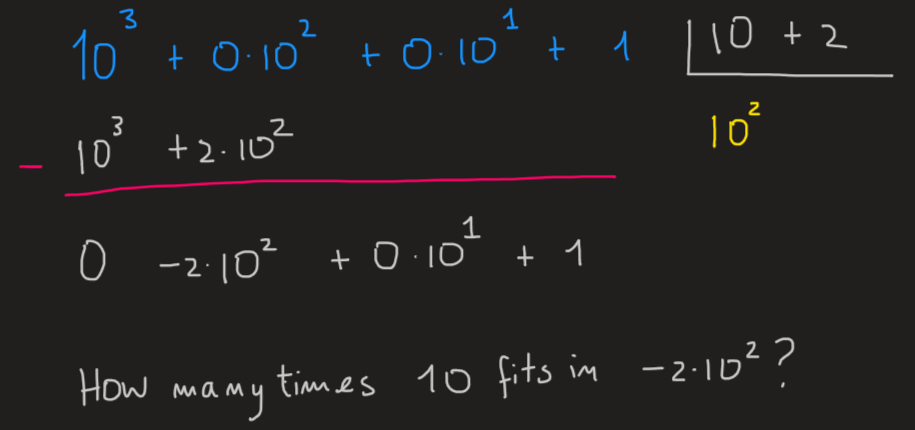 10³ + 0·10² + 0·10¹ + 1 | 10 + 2
10²
- 10³ + 2·10²
0 -2·10² + 0·10¹ + 1
How many times 10 fits in -2·10²?